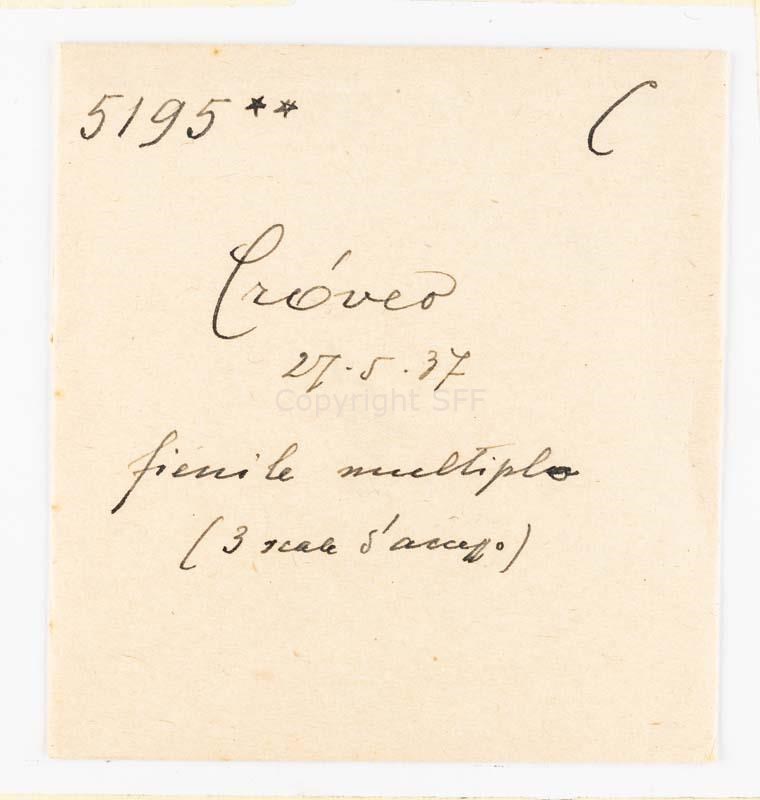 5195** C
Cróveo
27.5.37
Copyright SFF
fienile multiplo
(3 scale d'accesso)